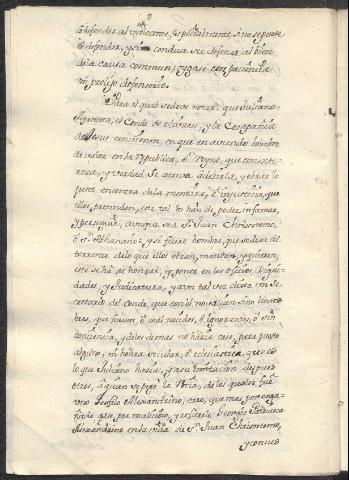 à defender al ynocente, especialmente si no se puede
el defender, y si no conduce su defensa al bien
de la causa commun; oygase con paciencia
mi prolijo defensorio.
Para el qual se deve notar, que Juliano
Apostata, el Conde de olivares, y la Compañia
de Jesus convienen, en que en aviendo hombre
de valor en la Republica, ò Reyno, que con ente-
reza, y verdad se atreva à dezirla, y obrar lo
justo encontra de la mentira, è injusticia, que
ellos pretenden, este tal lo han de poder infamar,
y perseguir, aunque sea Sn Juan Chrisostomo,
ò Sn Athanasio: y si fuere hombre, que se dexe
de lo que ellos obran, mandan, y quieren,
este se ha de honrar, y poner en los oficios, Digni-
dades, y Judicatura, y aun tal vez dixo un Se-
cretario del Conde, que con el no valian sino hom-
bres, que fuesen, ò mal nacidos, ò ignorantes, ò sin
conciencia, y de los demas no hazia caso, para puesto
alguno, ni honra secular, ò eclesiastica, que es
lo que Juliano hazia, y a su imitacion despues
otros, de los quales fue
uno Teofilo Alexandrino; creo, que mas por enga-
ñado que por malicioso, y refierelo Georgio Patriarca
Alexandrino en la vida de Sn Juan Chrisostomo,
y con su